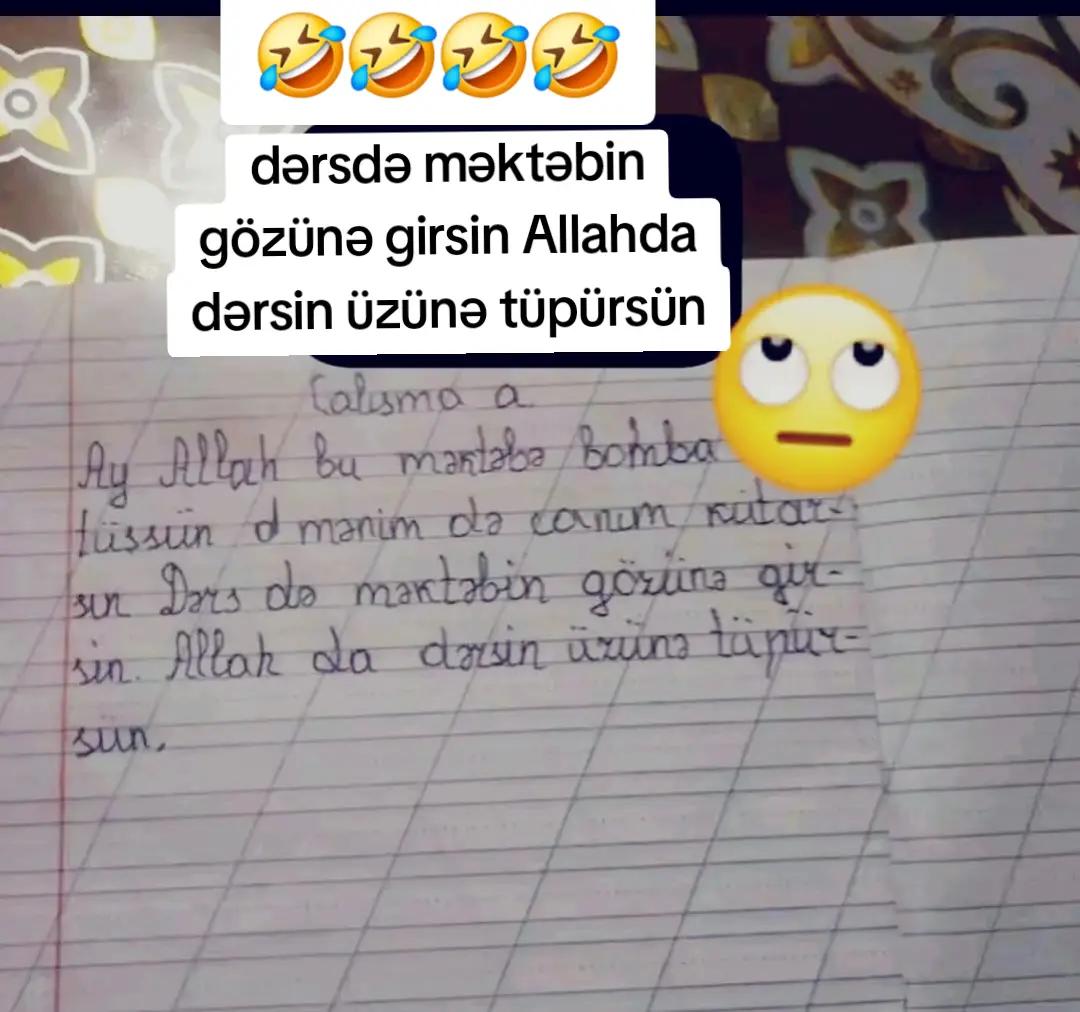 🤣🤣🤣🤣
dərsdə məktəbin
gözünə girsin Allahda
dərsin üzünə tüpürsün
Çalışma a
Ay Allah bu məktəbə bomba
tüssün d mənim də canım kutar-
sın Dərs də məktəbin gözünə gir-
sin. Allah da dərsin üzünə tüpür-
sün.